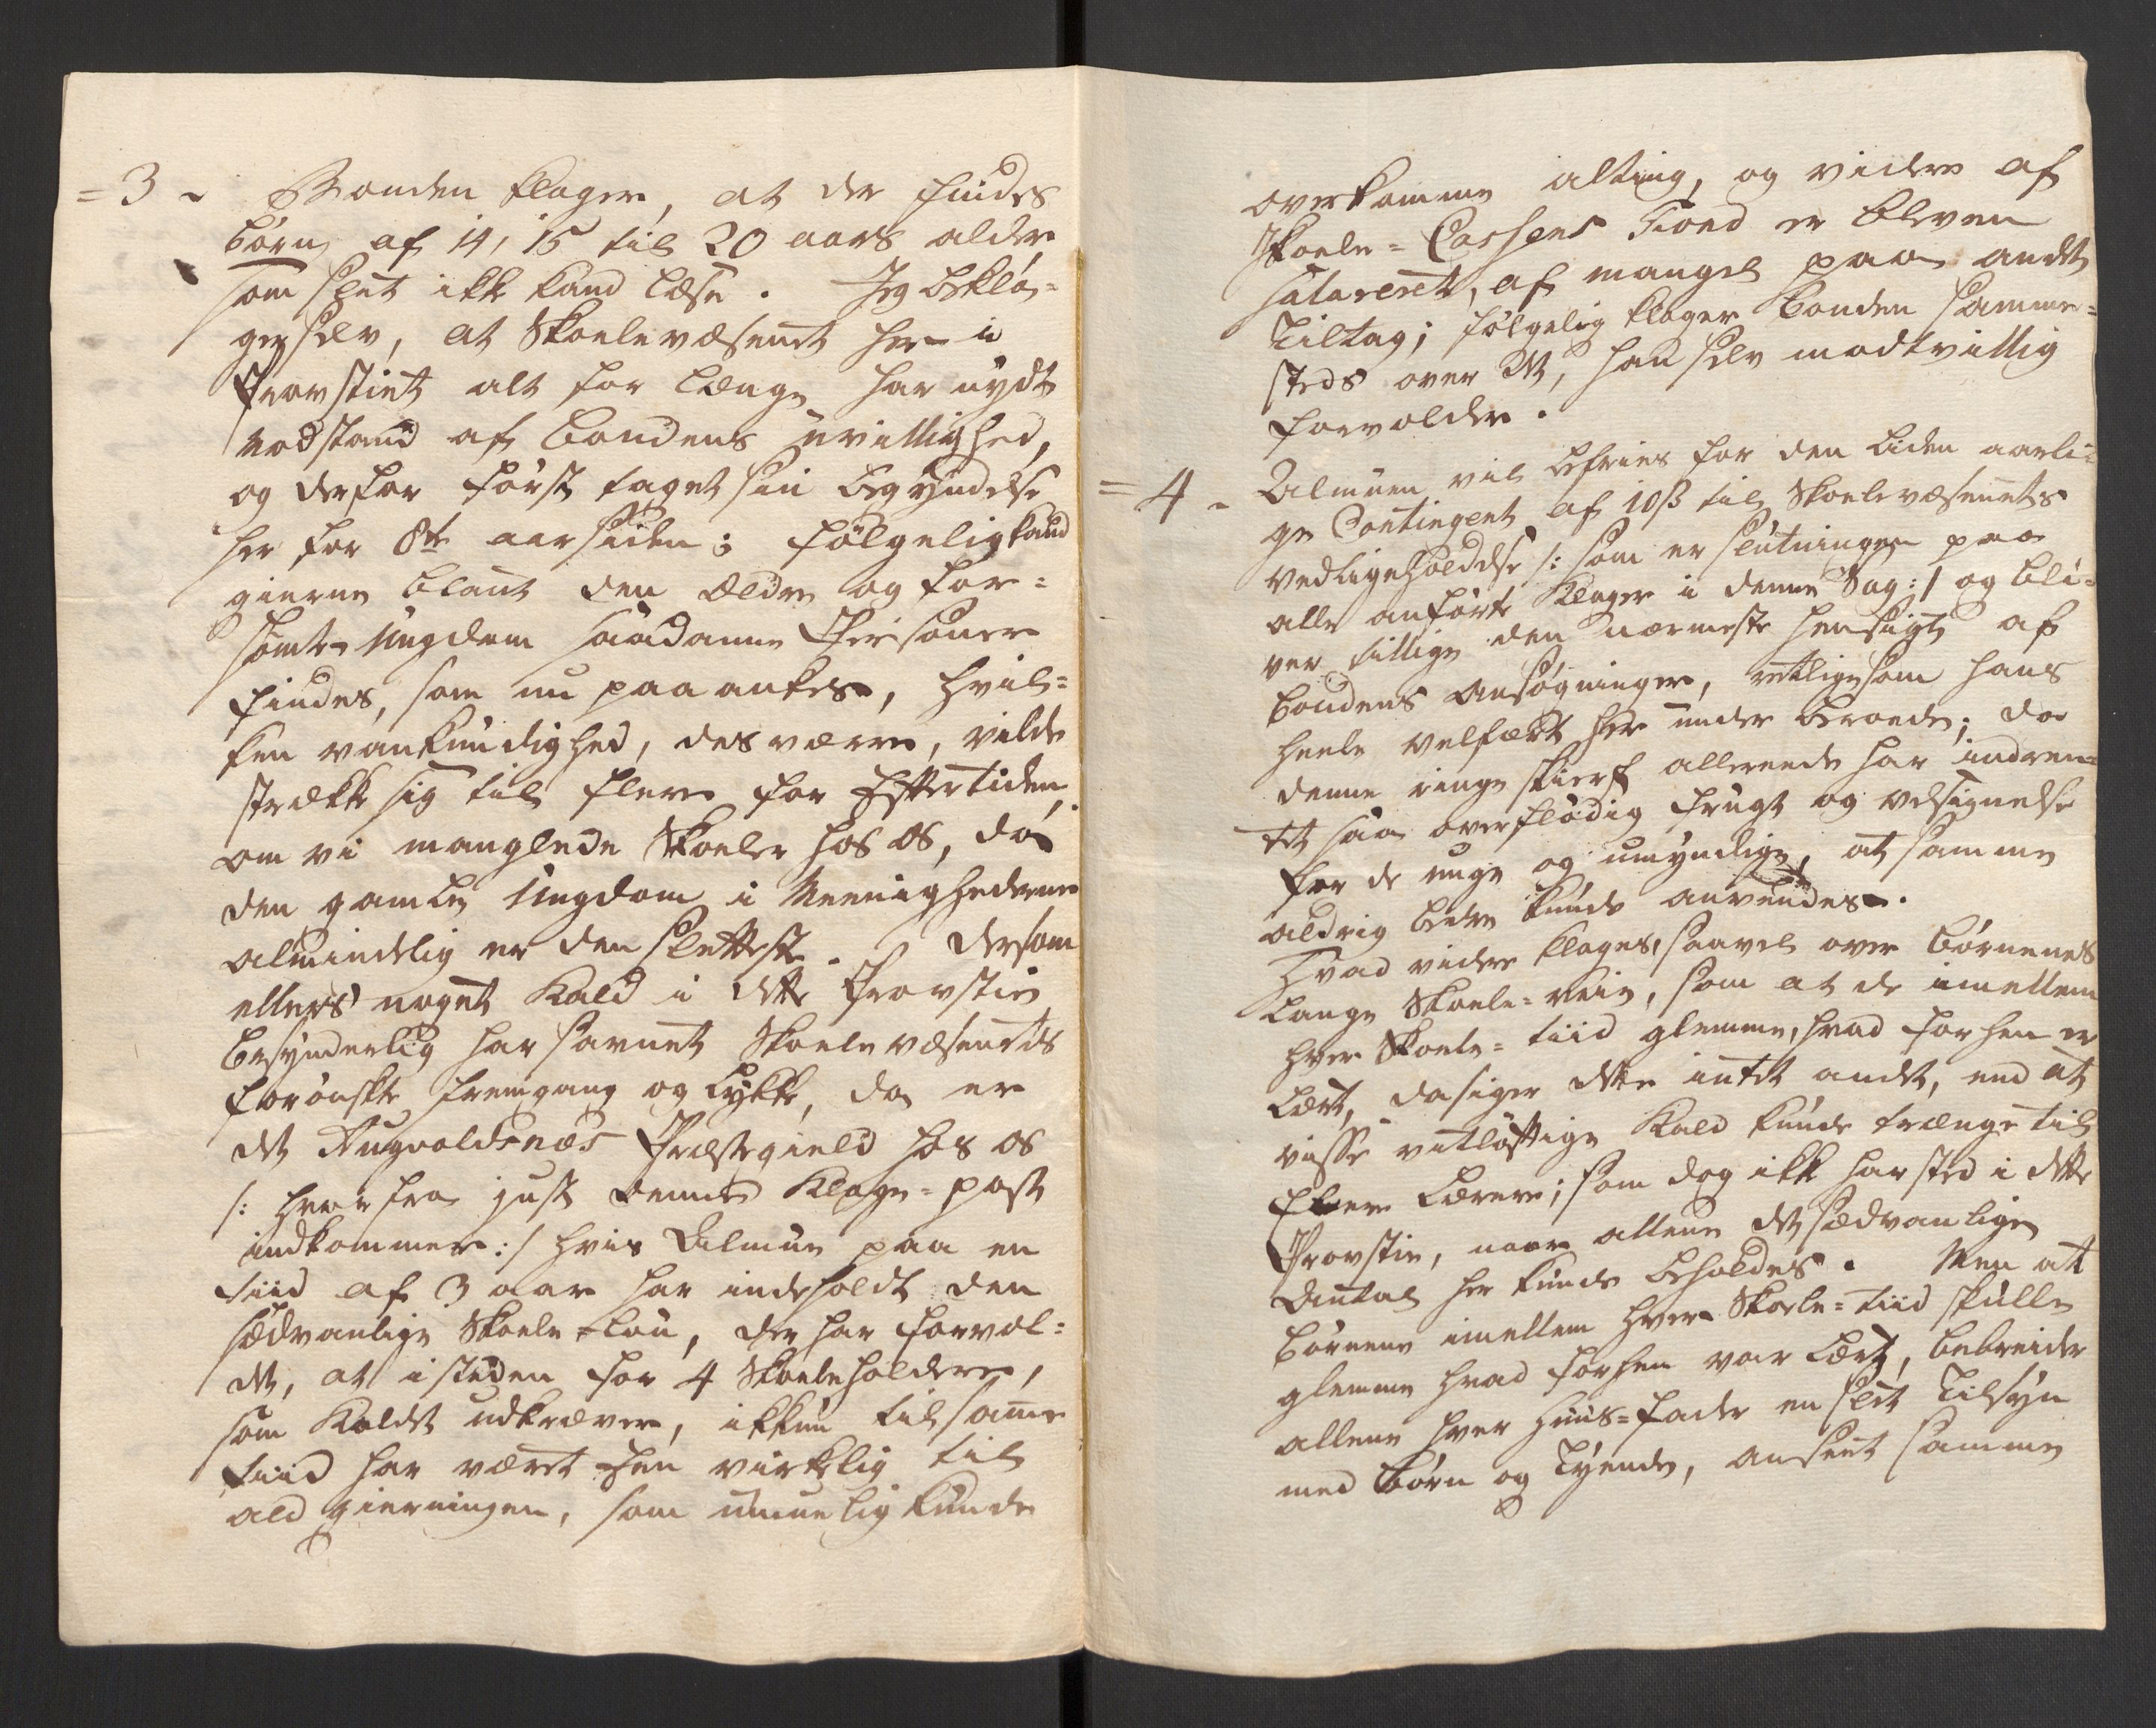 =3 - Bonden klager, at der findes
børn af 14, 15 til 20 aars alder
som slet ikke kand læse. Jeg beklâ=
ger selv, at Skoelevæsenet her i
Provstiet alt for længe har nydt
Modstand af bondens uvillighed,
og derfor først taget sin begyndelse
her for 8te aar siden; følgelig kand
gierne blant den ældre og for=
sømte Ungdom saadanne Personer
findes, som nu paaankes, hvil=
ken vankundighed, desværre, vilde
strække sig til flere for Eftertiden,
om vi manglede Skoeler hos os, da
den gamle Ungdom i Meenighederne
almindelig er den sletteste. Dersom
ellers noget Kald i dette Provstie
besynderlig har savnet Skoelevæsenets
forønskte fremgang og Lykke, da er
det Augvaldsnæs Præstegield hos os
/: hvorfra just denne Klage-post
indkommer :/ hvis Almue paa en
tiid af 3 aar har indeholdt den
sædvanlige Skoele-lön, der har forvol=
det, at i steden for 4 Skoeleholdere,
som Kaldet udkræver, ikkun til samme
tiid har været een virkelig til
ald gierningen, som umuelig kunde
overkomme alting, og videre af
Skoele-Cassens Fond er bleven
salareret, af mangel paa andet
Tiltag; følgelig klager bonden samme=
steds over det, han selv modvillig
forvolder.
=4 - Almuen vil befries for den liden aarli=
ge Contingent af 10 ß til Skoelevæsenets
vedligeholdelse /: som er slutningen paa
alle anførte Klager i denne Sag :/ og bli=
ver tillige den nærmeste hensigt af
bondens Ansøgninger, retligesom hans
heele velfært her under beroede; da
denne ringe skierf allereede har indven=
tet saa overflødig frugt og velsignelse
for de unge og umyndige, at samme
aldrig bedre kunde anvendes.
Hvad videre klages, saavel over børnenes
lange Skoele-vei, som at de imellem
hver Skoele-tiid glemme, hvad forhen er
lært, da siger dette intet andet, end at
visse vitløftige Kald kunde trænge til
fleere Lærere; som dog ikke har sted i dette
Provstie, naar allene det sædvanlige
Antal her kunde beholdes. Men at
børnene imellem hver Skoele-tiid skulle
glemme hvad forhen var lært, bebreider
allene hver Huus-fader en slet Tilsyn
med børn og Tyende, anseet samme